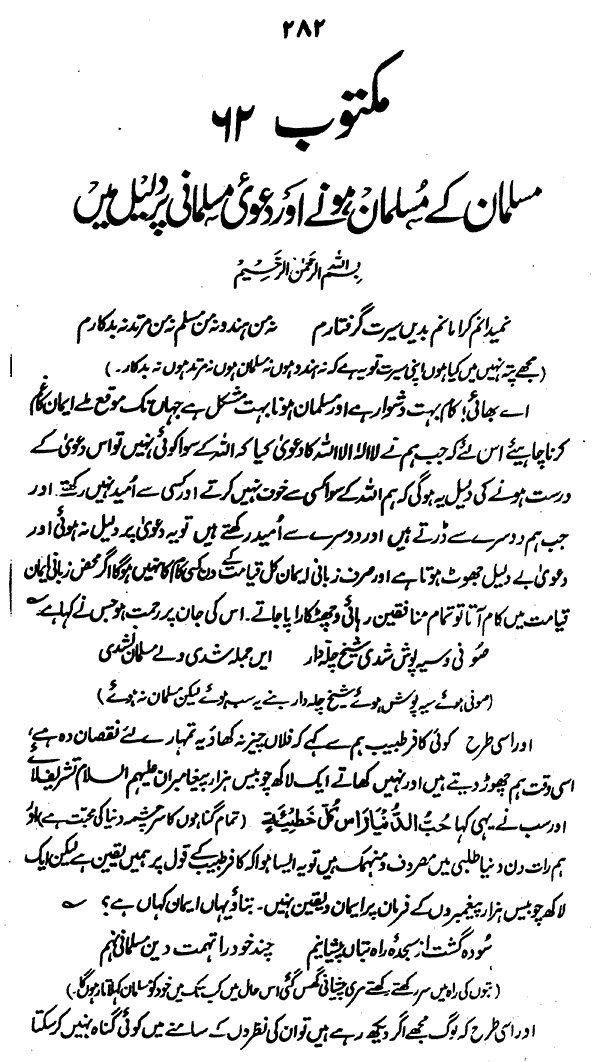 ۲۸۲
مکتوب ۶۲
مسلمان کے مسلمان ہونے اور دعویٔ مسلمانی پر دلیل میں
بسم اللہ الرحمٰن الرحیم
نمیدانم کرا مانم بدیں سیرت گرفتارم نہ من ہندو نہ من مسلم نہ من مرتد نہ بدکارم
(مجھے پتہ نہیں میں کیا ہوں اپنی سیرت تو یہ ہے کہ نہ ہندو ہوں نہ مسلمان ہوں نہ مرتد ہوں نہ بدکار۔)
اے بھائی! کام بہت دشوار ہے اور مسلمان ہونا بہت مشکل ہے جہاں تک موقع ملے ایمان کا غم
کرنا چاہیئے اس لئے کہ جب ہم نے لا الہٰ الا اللہ کا دعویٰ کیا کہ اللہ کے سوا کوئی نہیں تو اس دعویٰ کے
درست ہونے کی دلیل یہ ہوگی کہ ہم اللہ کے سوا کسی سے خوف نہیں کرتے اور کسی سے اُمید نہیں رکھتے اور
جب ہم دوسرے سے ڈرتے ہیں اور دوسرے سے اُمید رکھتے ہیں تو یہ دعویٰ پر دلیل نہ ہوئی اور
دعویٰ بے دلیل جھوٹ ہوتا ہے اور صرف زبانی ایمان کل قیامت کے دن کسی کام کا نہیں ہوگا اگر محض زبانی ایمان
قیامت میں کام آتا تو تمام منافقین رہائی و چھٹکارا پا جاتے۔ اس کی جان پر رحمت ہو جس نے کہا ہے
صوفی و سیہ پوش شدی شیخ چلہ دار ایں جملہ شدی ولے مسلماں نشدی
(صوفی ہوئے سیہ پوش ہوئے شیخ چلہ دار بنے یہ سب ہوئے لیکن مسلمان نہ ہوئے)
اور اسی طرح کوئی کافر طبیب ہم سے کہے کہ فلاں چیز نہ کھاؤ یہ تمہارے لئے نقصان دہ ہے،
اسی وقت ہم چھوڑ دیتے ہیں اور نہیں کھاتے ایک لاکھ چوبیس ہزار پیغامبران علیہم السلام تشریف لائے
اور سب نے یہی کہا حُبُّ الدُّنْیَا رَاسُ کُلِّ خَطِیْئَۃٍ (تمام گناہوں کا سرچشمہ دنیا کی محبت ہے) اور
ہم رات دن دنیا طلبی میں مصروف و منہمک ہیں تو یہ ایسا ہوا کہ کافر طبیب کے قول پر ہمیں یقین ہے لیکن ایک
لاکھ چوبیس ہزار پیغمبروں کے فرمان پر ایمان و یقین نہیں۔ بتاؤ یہاں ایمان کہاں ہے؟
سودہ گشت از سجدۂ راہ بتاں پیشانیم چند خود را تہمت دین مسلمانی نہم
(بتوں کی راہ میں سر رکھتے رکھتے میری پیشانی گھس گئی اس حال میں کب تک میں خود کو مسلمان کہلاتا رہوں گا۔)
اور اسی طرح کہ لوگ مجھے اگر دیکھ رہے ہیں تو ان کی نظروں کے سامنے میں کوئی گناہ نہیں کر سکتا